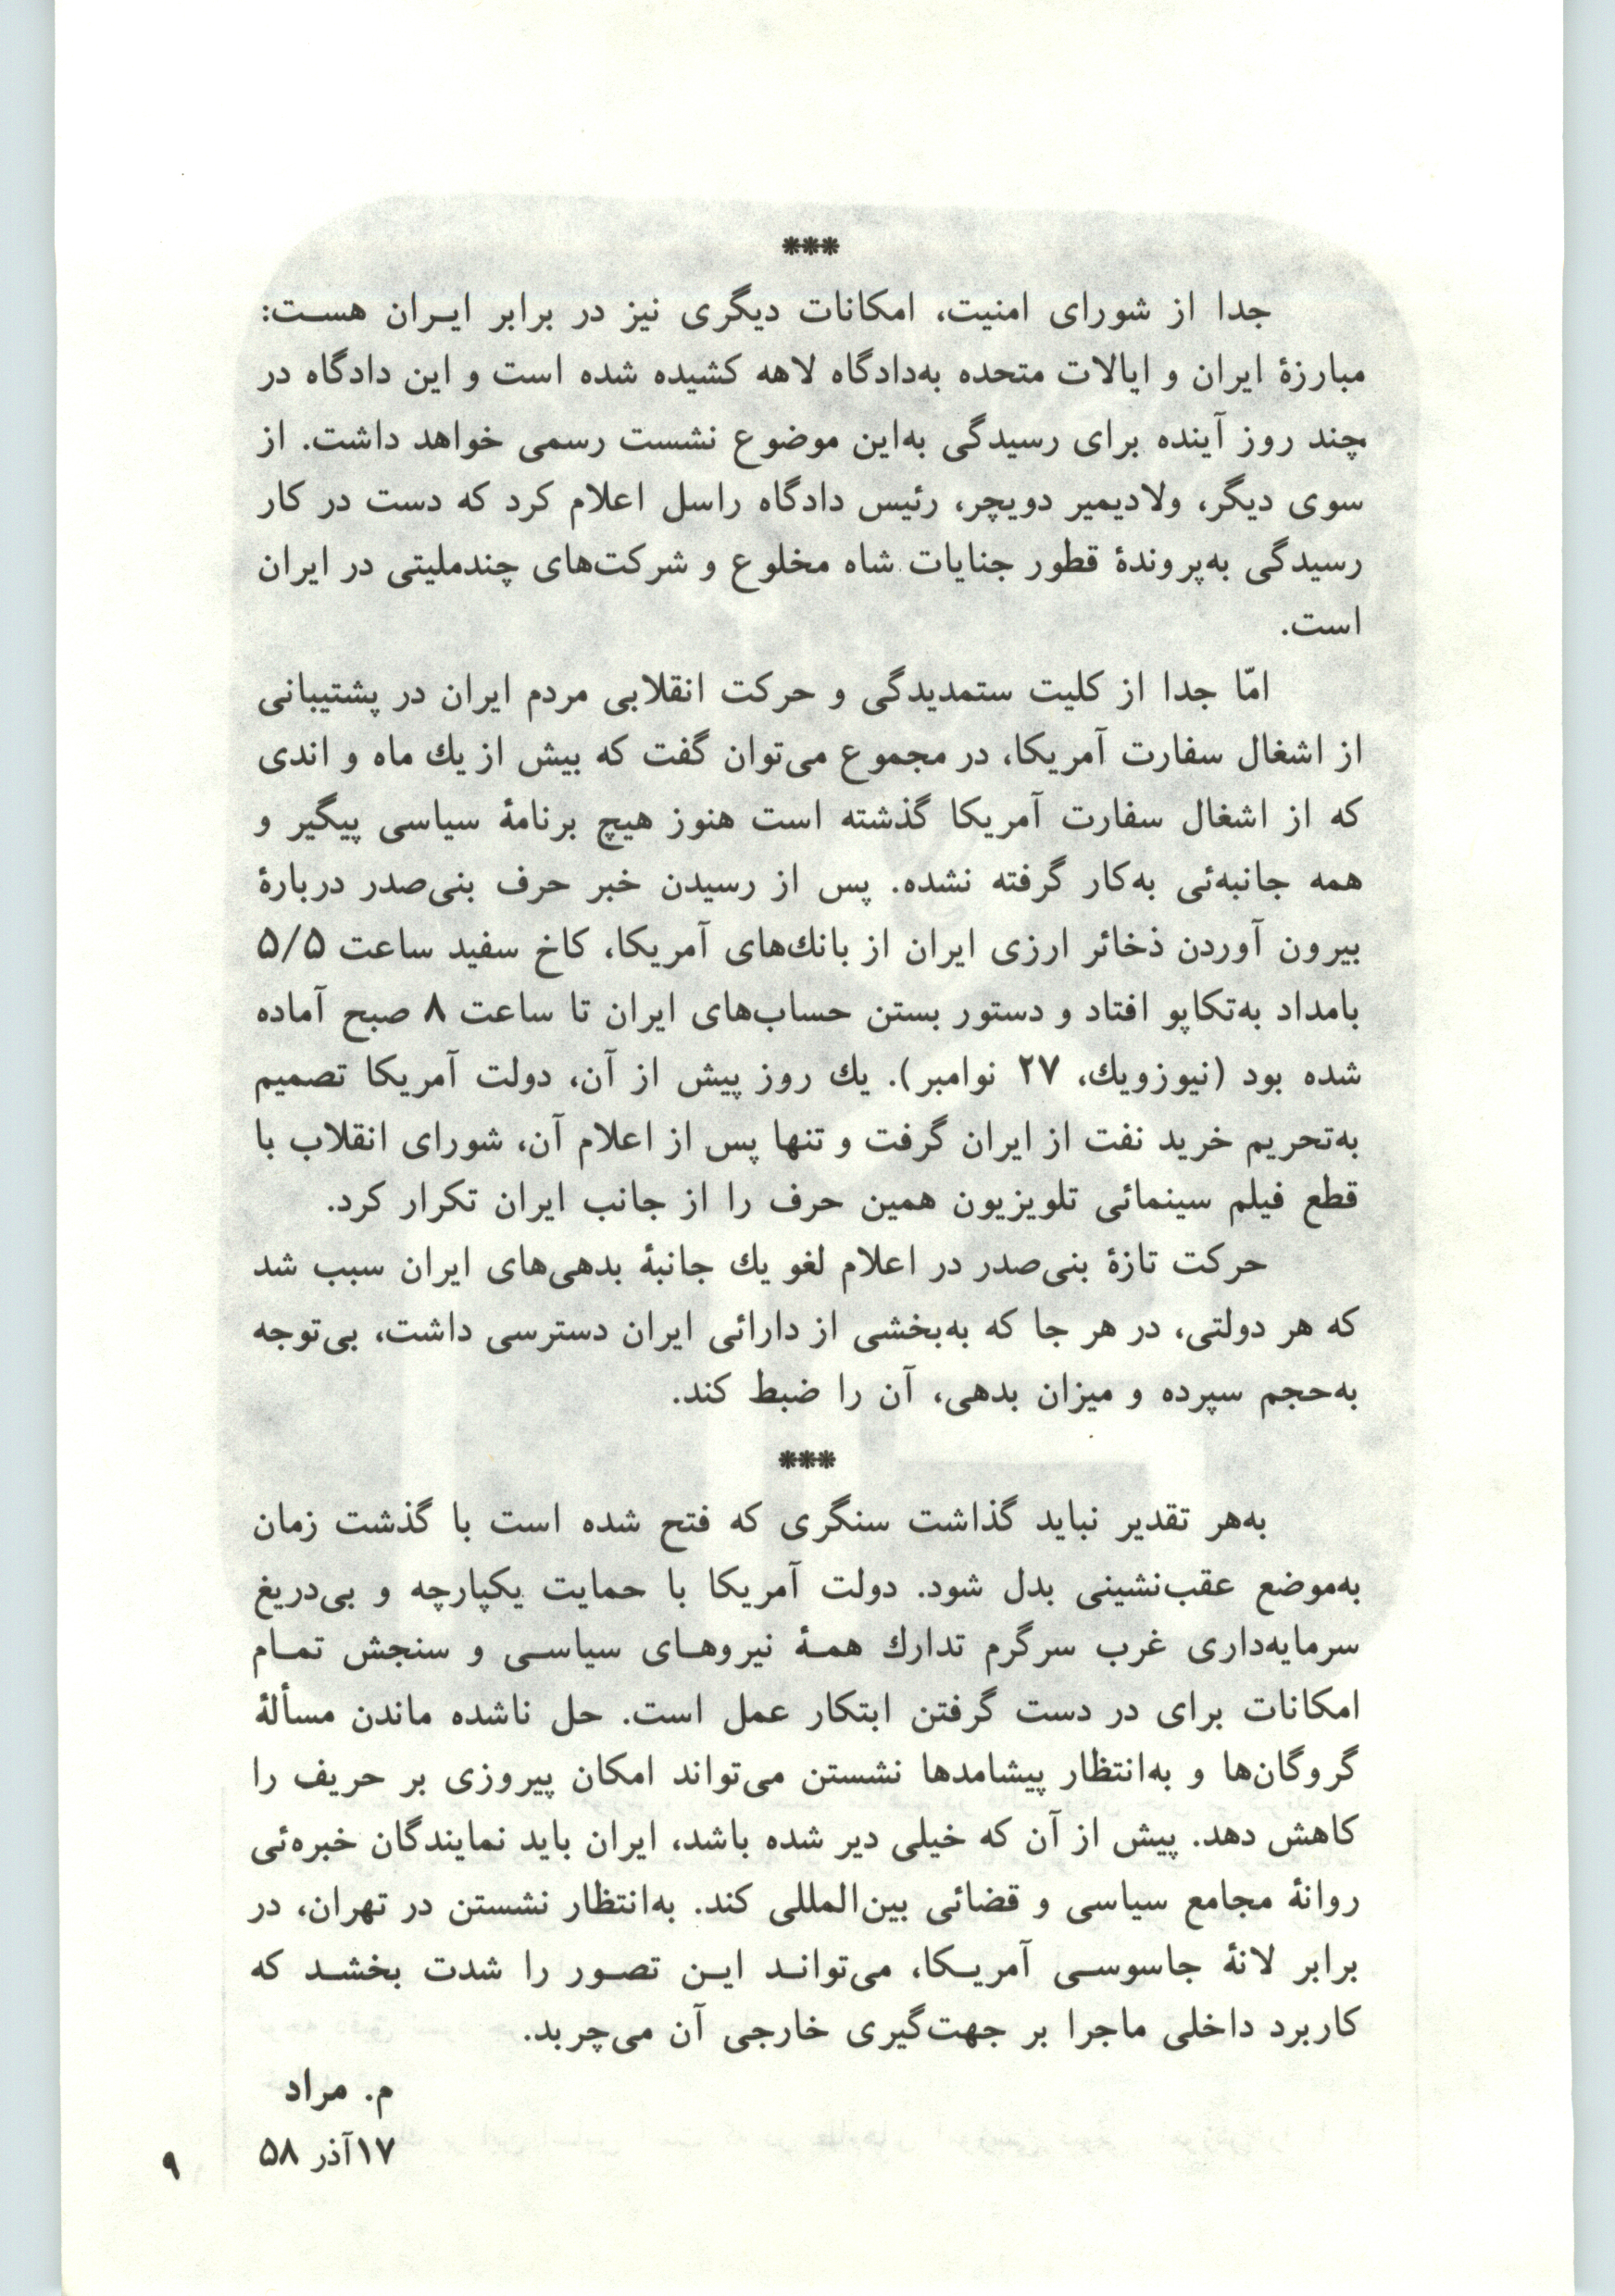 ***
جدا از شورای امنیت، امکانات دیگری نیز در برابر ایـران هسـت:
مبارزۀ ایران و ایالات متحده به‌دادگاه لاهه کشیده شده است و این دادگاه در
چند روز آینده برای رسیدگی به‌این موضوع نشست رسمی خواهد داشت. از
سوی دیگر، ولادیمیر دویچر، رئیس دادگاه راسل اعلام کرد که دست در کار
رسیدگی به‌پروندۀ قطور جنایات شاه مخلوع و شرکت‌های چندملیتی در ایران
است.
امّا جدا از کلیت ستمدیدگی و حرکت انقلابی مردم ایران در پشتیبانی
از اشغال سفارت آمریکا، در مجموع می‌توان گفت که بیش از یك ماه و اندی
که از اشغال سفارت آمریکا گذشته است هنوز هیچ برنامۀ سیاسی پیگیر و
همه جانبه‌ئی به‌کار گرفته نشده. پس از رسیدن خبر حرف بنی‌صدر دربارۀ
بیرون آوردن ذخائر ارزی ایران از بانك‌های آمریکا، کاخ سفید ساعت ۵/۵
بامداد به‌تکاپو افتاد و دستور بستن حساب‌های ایران تا ساعت ۸ صبح آماده
شده بود (نیوزویك، ۲۷ نوامبر). یك روز پیش از آن، دولت آمریکا تصمیم
به‌تحریم خرید نفت از ایران گرفت و تنها پس از اعلام آن، شورای انقلاب با
قطع فیلم سینمائی تلویزیون همین حرف را از جانب ایران تکرار کرد.
حرکت تازۀ بنی‌صدر در اعلام لغو یك جانبۀ بدهی‌های ایران سبب شد
که هر دولتی، در هر جا که به‌بخشی از دارائی ایران دسترسی داشت، بی‌توجه
به‌حجم سپرده و میزان بدهی، آن را ضبط کند.
***
به‌هر تقدیر نباید گذاشت سنگری که فتح شده است با گذشت زمان
به‌موضع عقب‌نشینی بدل شود. دولت آمریکا با حمایت یکپارچه و بی‌دریغ
سرمایه‌داری غرب سرگرم تدارك همـۀ نیروهـای سیاسـی و سنجش تمـام
امکانات برای در دست گرفتن ابتکار عمل است. حل ناشده ماندن مسألۀ
گروگان‌ها و به‌انتظار پیشامدها نشستن می‌تواند امکان پیروزی بر حریف را
کاهش دهد. پیش از آن که خیلی دیر شده باشد، ایران باید نمایندگان خبره‌ئی
روانۀ مجامع سیاسی و قضائی بین‌المللی کند. به‌انتظار نشستن در تهران، در
برابر لانۀ جاسوسـی آمریـکا، می‌توانـد ایـن تصـور را شدت بخشـد که
کاربرد داخلی ماجرا بر جهت‌گیری خارجی آن می‌چربد.
م. مراد
۱۷آذر ۵۸
۹